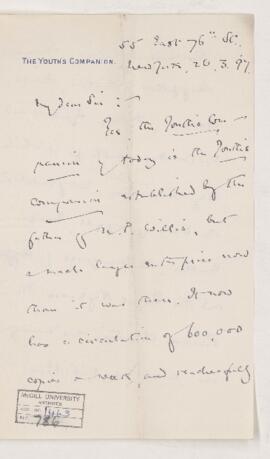 55 East 76th St.
THE YOUTH'S COMPANION.
New York, 26.3.97
My dear Sir:
Yes the Youth's Com-
panion of today is the Youth's
Companion established by the
father of N. P. Willis, but
a much larger enterprise now
than it was then. It now
has a circulation of 600,000
copies a week, and
McGILL UNIVERSITY
ARCHIVES
ACC. NO. 1463
REF. 786